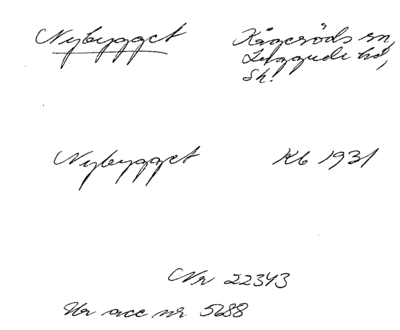 Nybygget Kågeröds sn,
Luggude hd,
Sk.
Nybygget Kb 1931
Nr 22343
Ur acc nr 5688